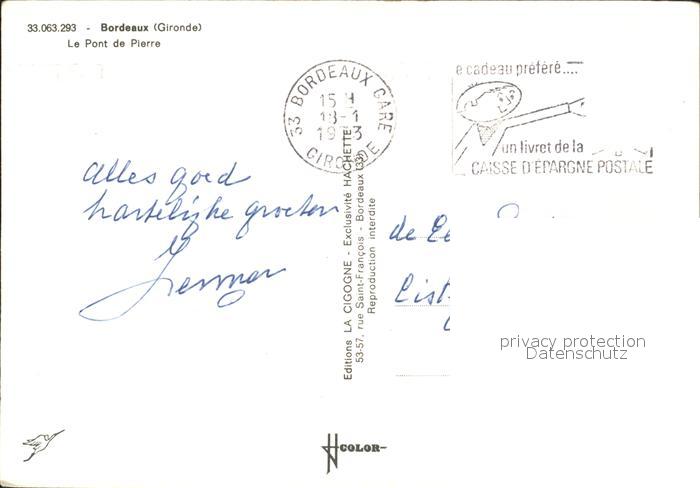 33.063.293 - Bordeaux (Gironde)
Le Pont de Pierre
33 BORDEAUX GARE
15 H
18-1
1973
GIRONDE
e cadeau préféré....
un livret de la
CAISSE D'EPARGNE POSTALE
alles goed
hartelijke groeten
Editions LA CIGOGNE - Exclusivité HACHETTE
53-57, rue Saint-François - Bordeaux (33)
Reproduction interdite
de
privacy protection
Datenschutz
COLOR